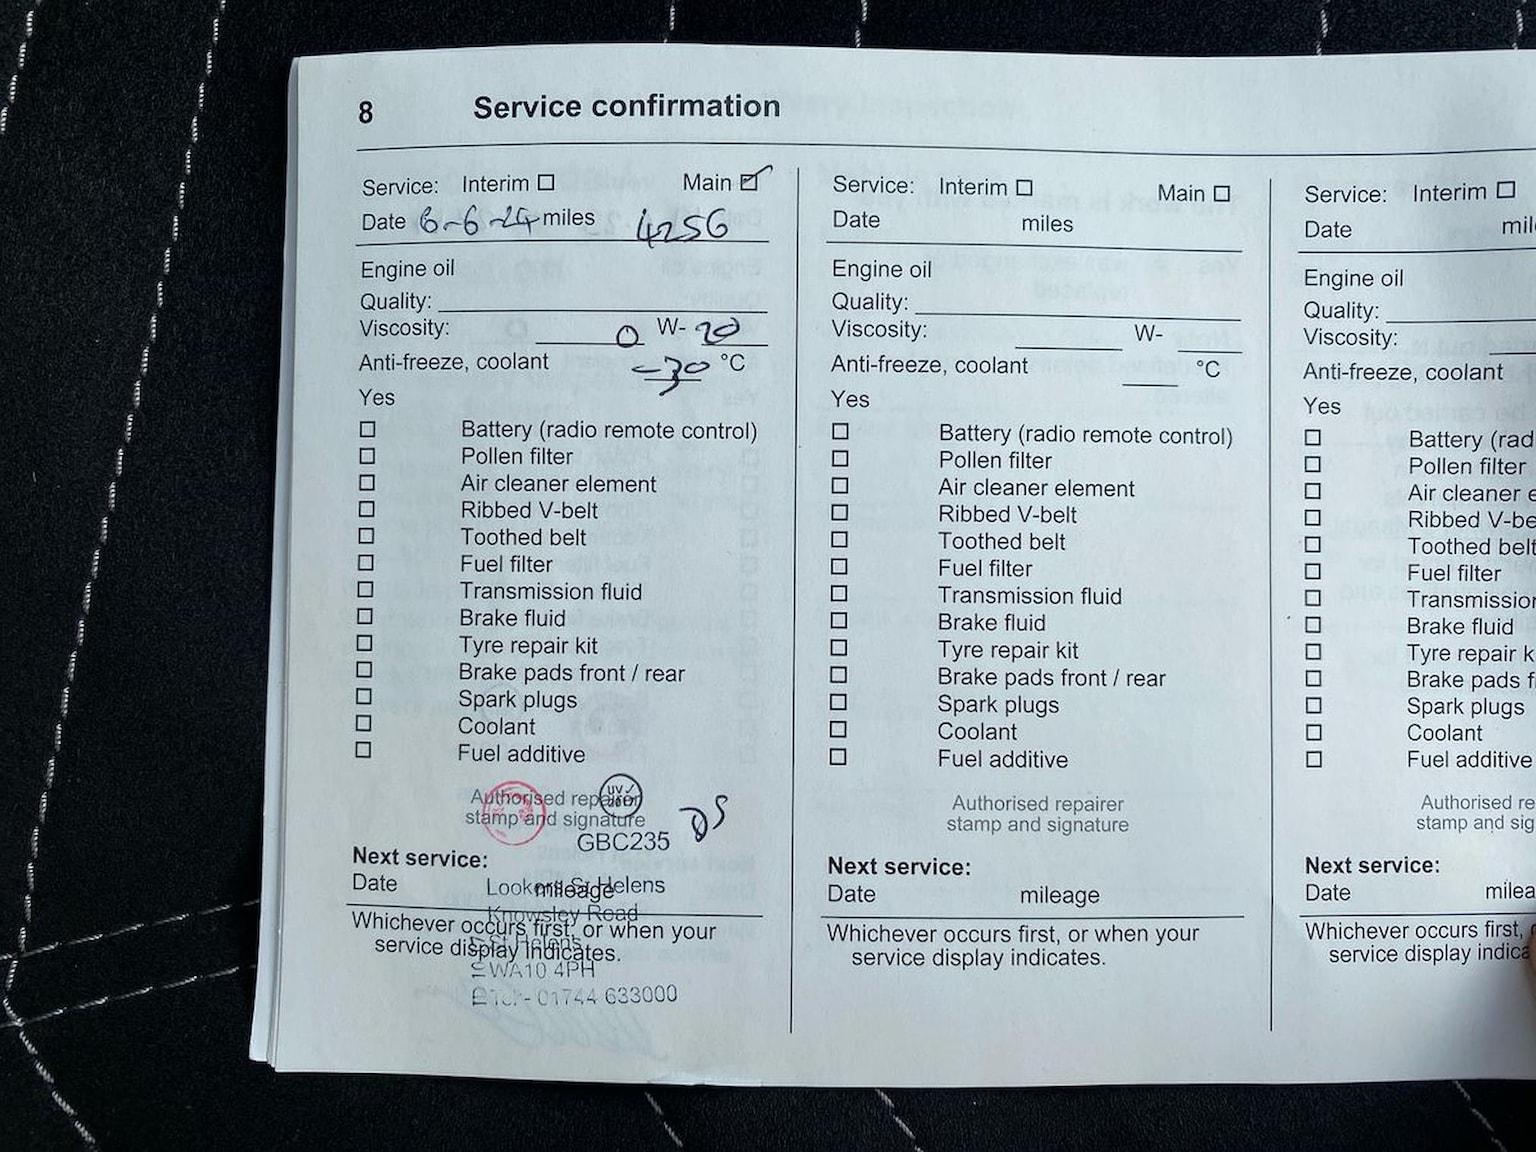 8 Service confirmation
Service: Interim ☐ Main ☑
Date 6-6-24 miles 4256
Engine oil
Quality:
Viscosity: 0 W- 20
Anti-freeze, coolant -30 °C
Yes
☐ Battery (radio remote control)
☐ Pollen filter
☐ Air cleaner element
☐ Ribbed V-belt
☐ Toothed belt
☐ Fuel filter
☐ Transmission fluid
☐ Brake fluid
☐ Tyre repair kit
☐ Brake pads front / rear
☐ Spark plugs
☐ Coolant
☐ Fuel additive
Authorised repairer
stamp and signature
GBC235
DS
Next service:
Date mileage
Lookers St Helens
Knowsley Road
St Helens
WA10 4PH
Tel:- 01744 633000
Whichever occurs first, or when your
service display indicates.
Service: Interim ☐ Main ☐
Date miles
Engine oil
Quality:
Viscosity: W-
Anti-freeze, coolant °C
Yes
☐ Battery (radio remote control)
☐ Pollen filter
☐ Air cleaner element
☐ Ribbed V-belt
☐ Toothed belt
☐ Fuel filter
☐ Transmission fluid
☐ Brake fluid
☐ Tyre repair kit
☐ Brake pads front / rear
☐ Spark plugs
☐ Coolant
☐ Fuel additive
Authorised repairer
stamp and signature
Next service:
Date mileage
Whichever occurs first, or when your
service display indicates.
Service: Interim ☐
Date
Engine oil
Quality:
Viscosity:
Anti-freeze, coolant
Yes
☐ Battery
☐ Pollen filter
☐ Air cleaner
☐ Ribbed
☐ Toothed belt
☐ Fuel filter
☐ Transmission
☐ Brake fluid
☐ Tyre repair
☐ Brake pads
☐ Spark plugs
☐ Coolant
☐ Fuel additive
Authorised
stamp and
Next service:
Date
Whichever occurs first,
service display